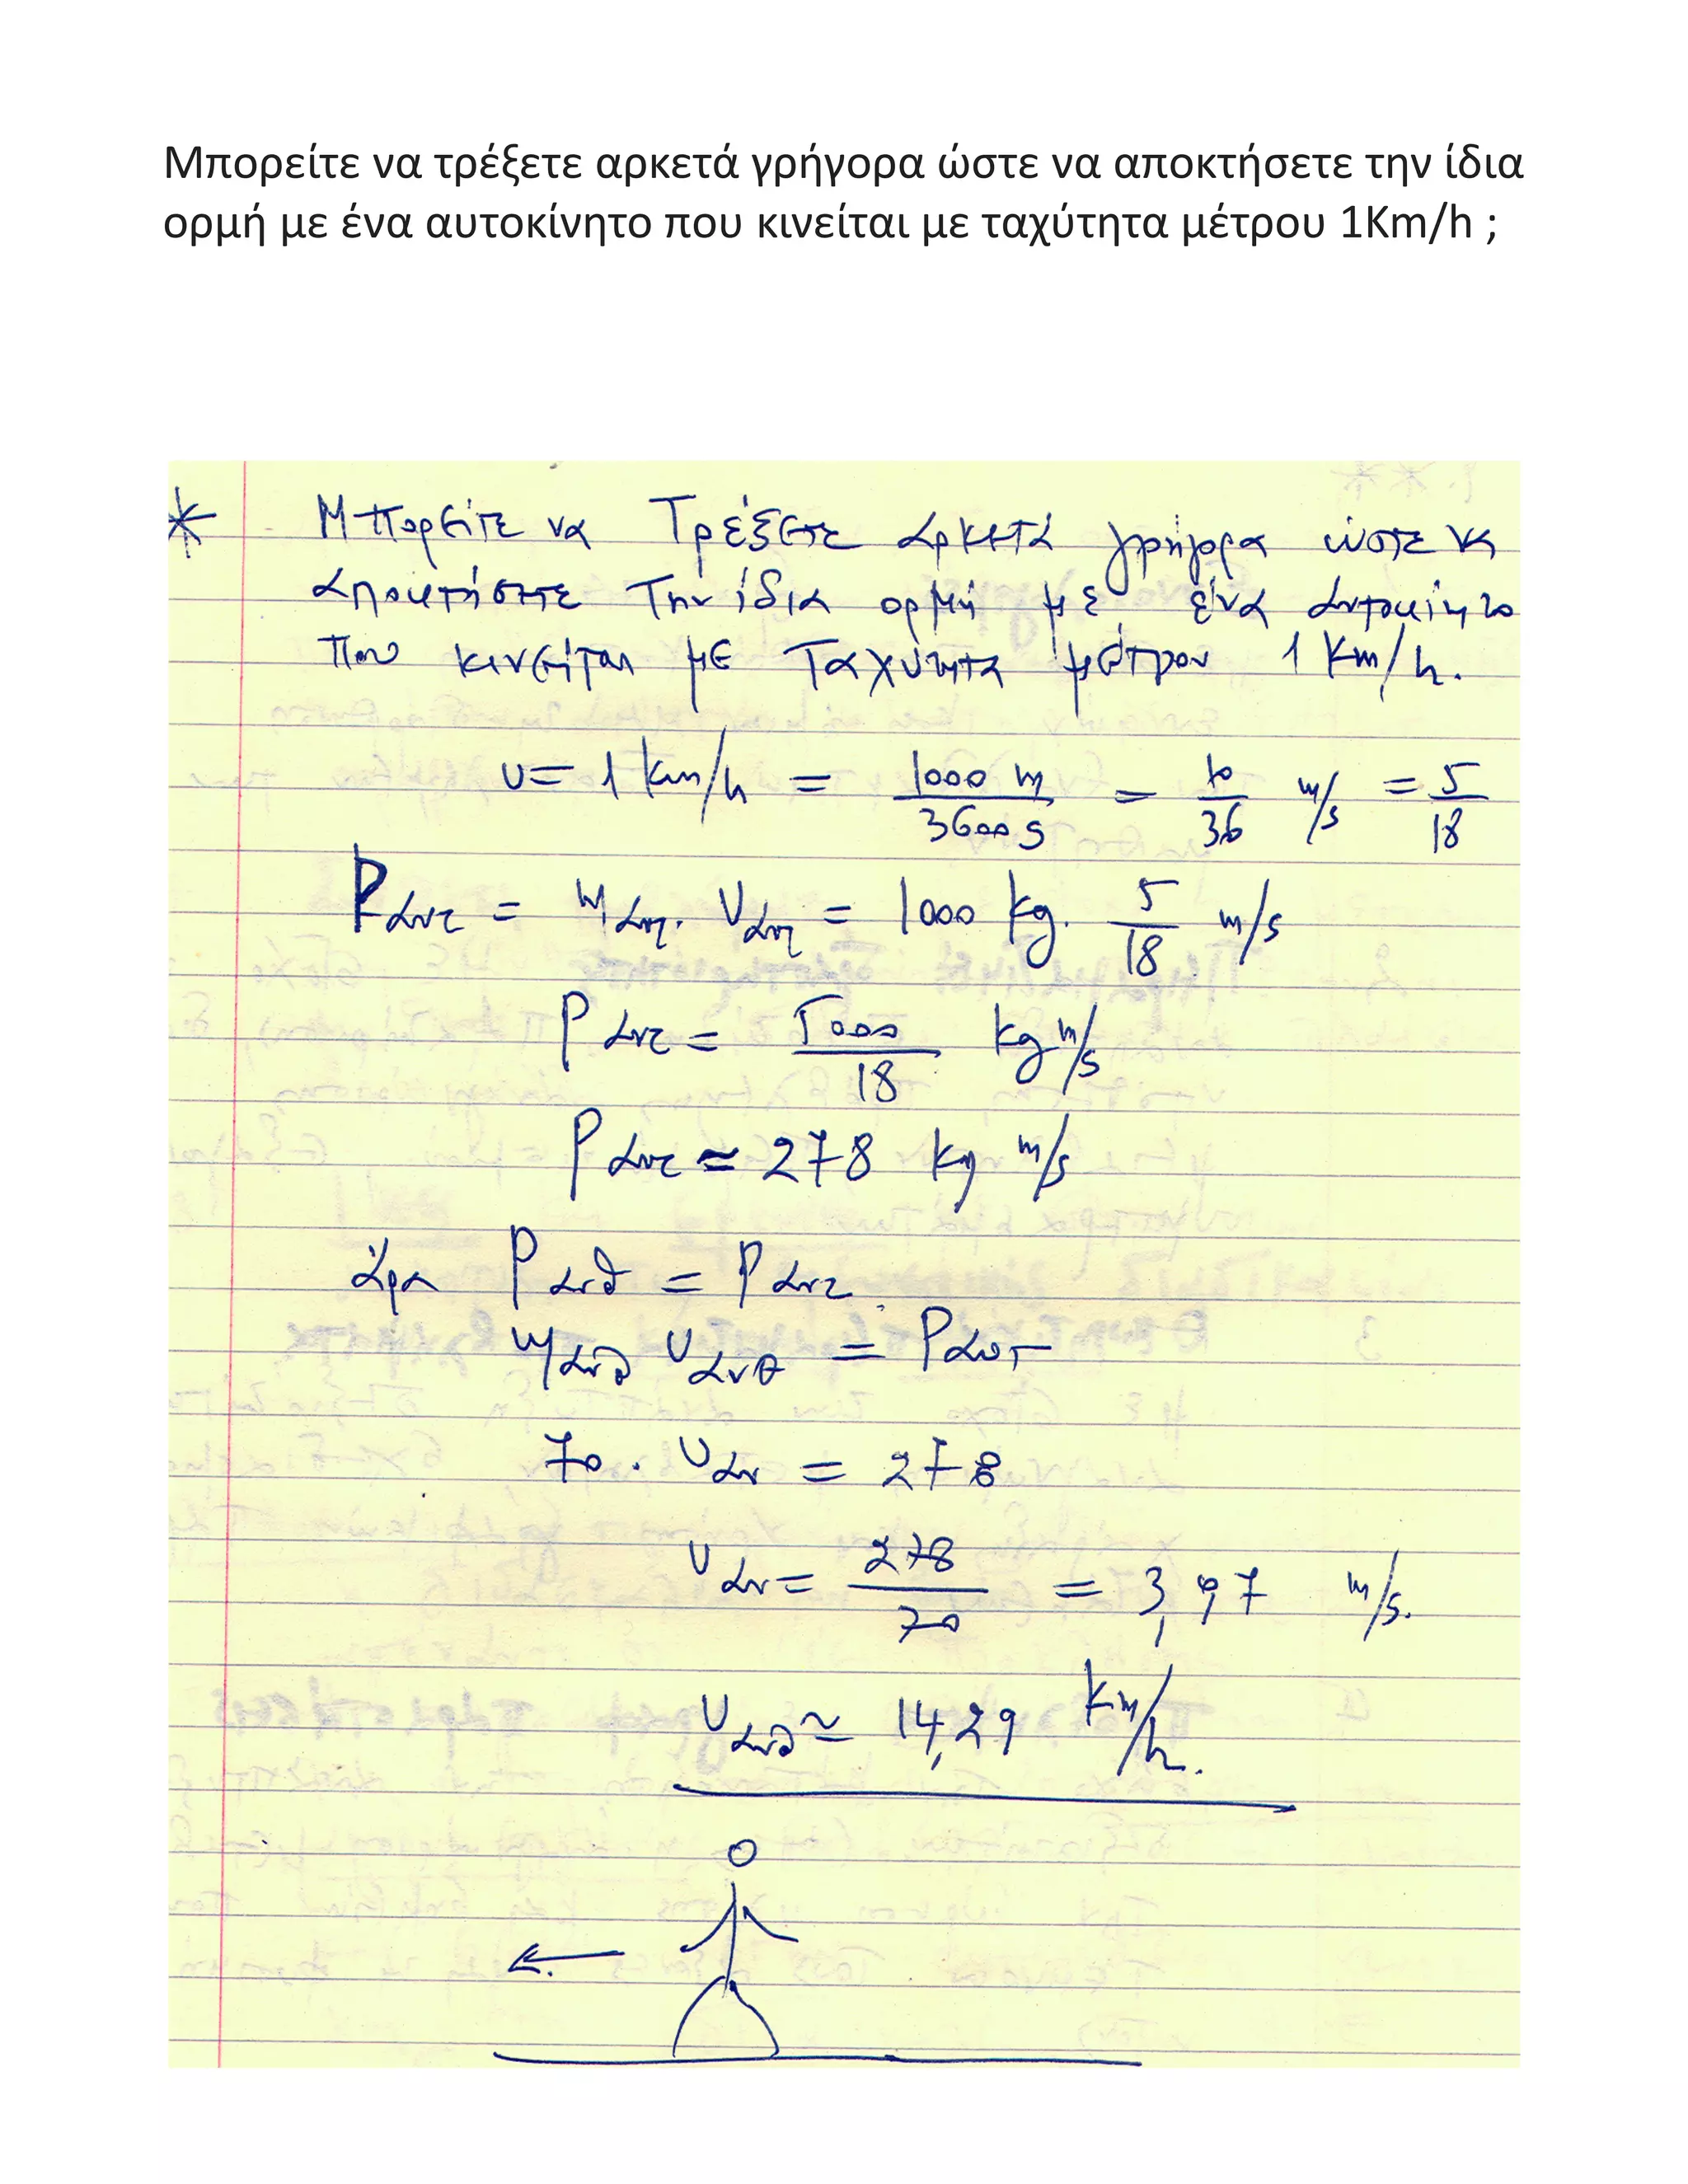 Μπορείτε να τρέξετε αρκετά γρήγορα ώστε να αποκτήσετε την ίδια
ορμή με ένα αυτοκίνητο που κινείται με ταχύτητα μέτρου 1Km/h ;
* Μπορείτε να Τρέξετε αρκετά γρήγορα ώστε να
αποκτήσετε την ίδια ορμή με ένα αυτοκίνητο
που κινείται με ταχύτητα μέτρου 1 Km/h.
υ = 1 km/h = 1000 m / 3600 s = 10/36 m/s = 5/18
Pαυτ = mαυτ. υαυτ = 1000 kg. 5/18 m/s
Pαυτ = 5000/18 kg m/s
Pαυτ ≈ 278 kg m/s
άρα Pανθ = Pαυτ
mανθ υανθ = Pαυτ
70 . υαν = 278
υαν = 278/70 = 3,97 m/s.
υανθ ≈ 14,29 km/h.